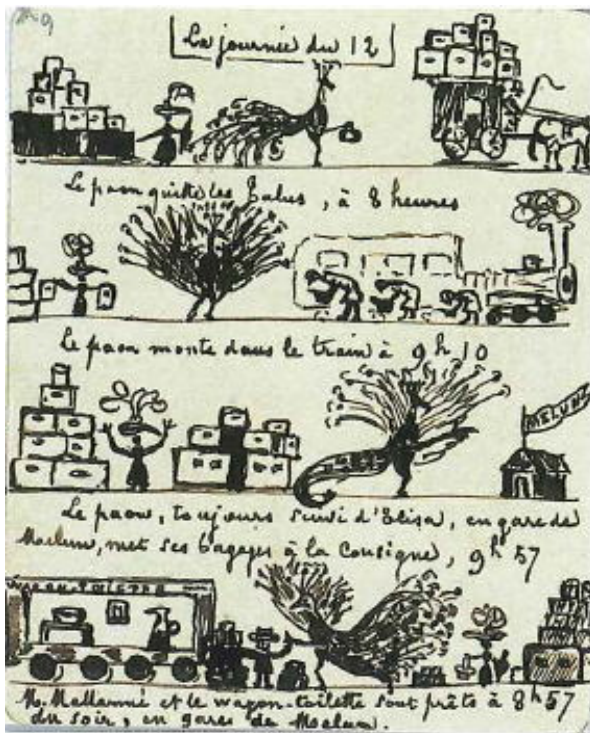 La journée du 12
Le paon quitte les Talus, à 8 heures
Le paon monte dans le train à 9 h 10
MELUN
Le paon, toujours suivi d'Elisa, en gare de
Melun, met ses bagages à la Consigne, 9h 57
WAGON-TOILETTE
M. Mallarmé et le wagon-toilette sont prêts à 8h 57
du soir, en gare de Melun.